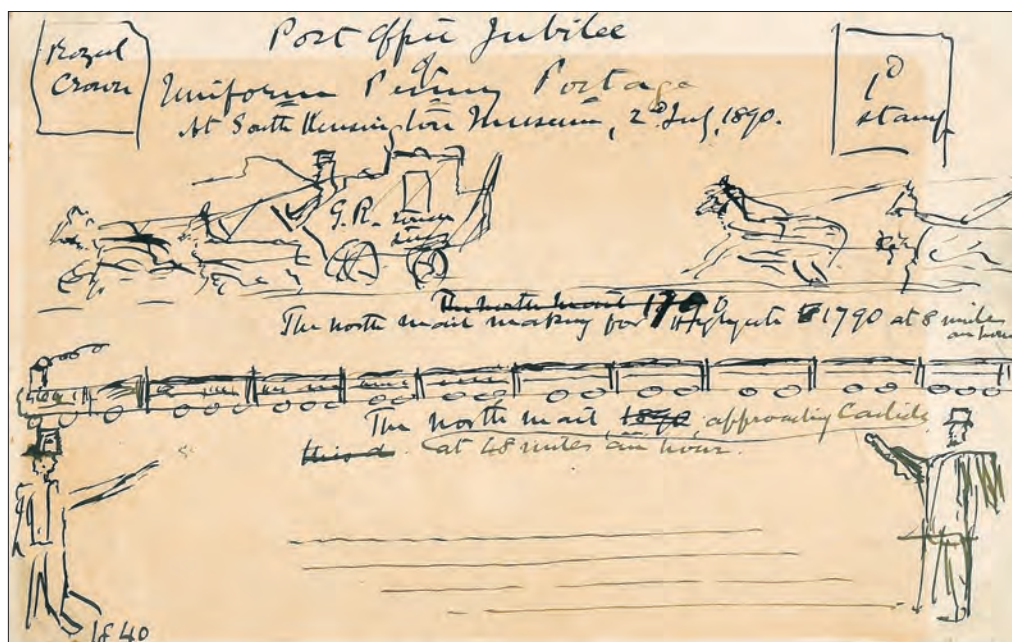 Royal
Crown
Post Office Jubilee
of
Uniform Penny Postage
At South Kensington Museum, 2nd July, 1890.
1D
stamp
G.R.
The North Mail 1790
The North Mail making for Highgate 1790 at 8 miles
an hour
The North Mail, 1890, approaching Carlisle
at 48 miles an hour.
1840